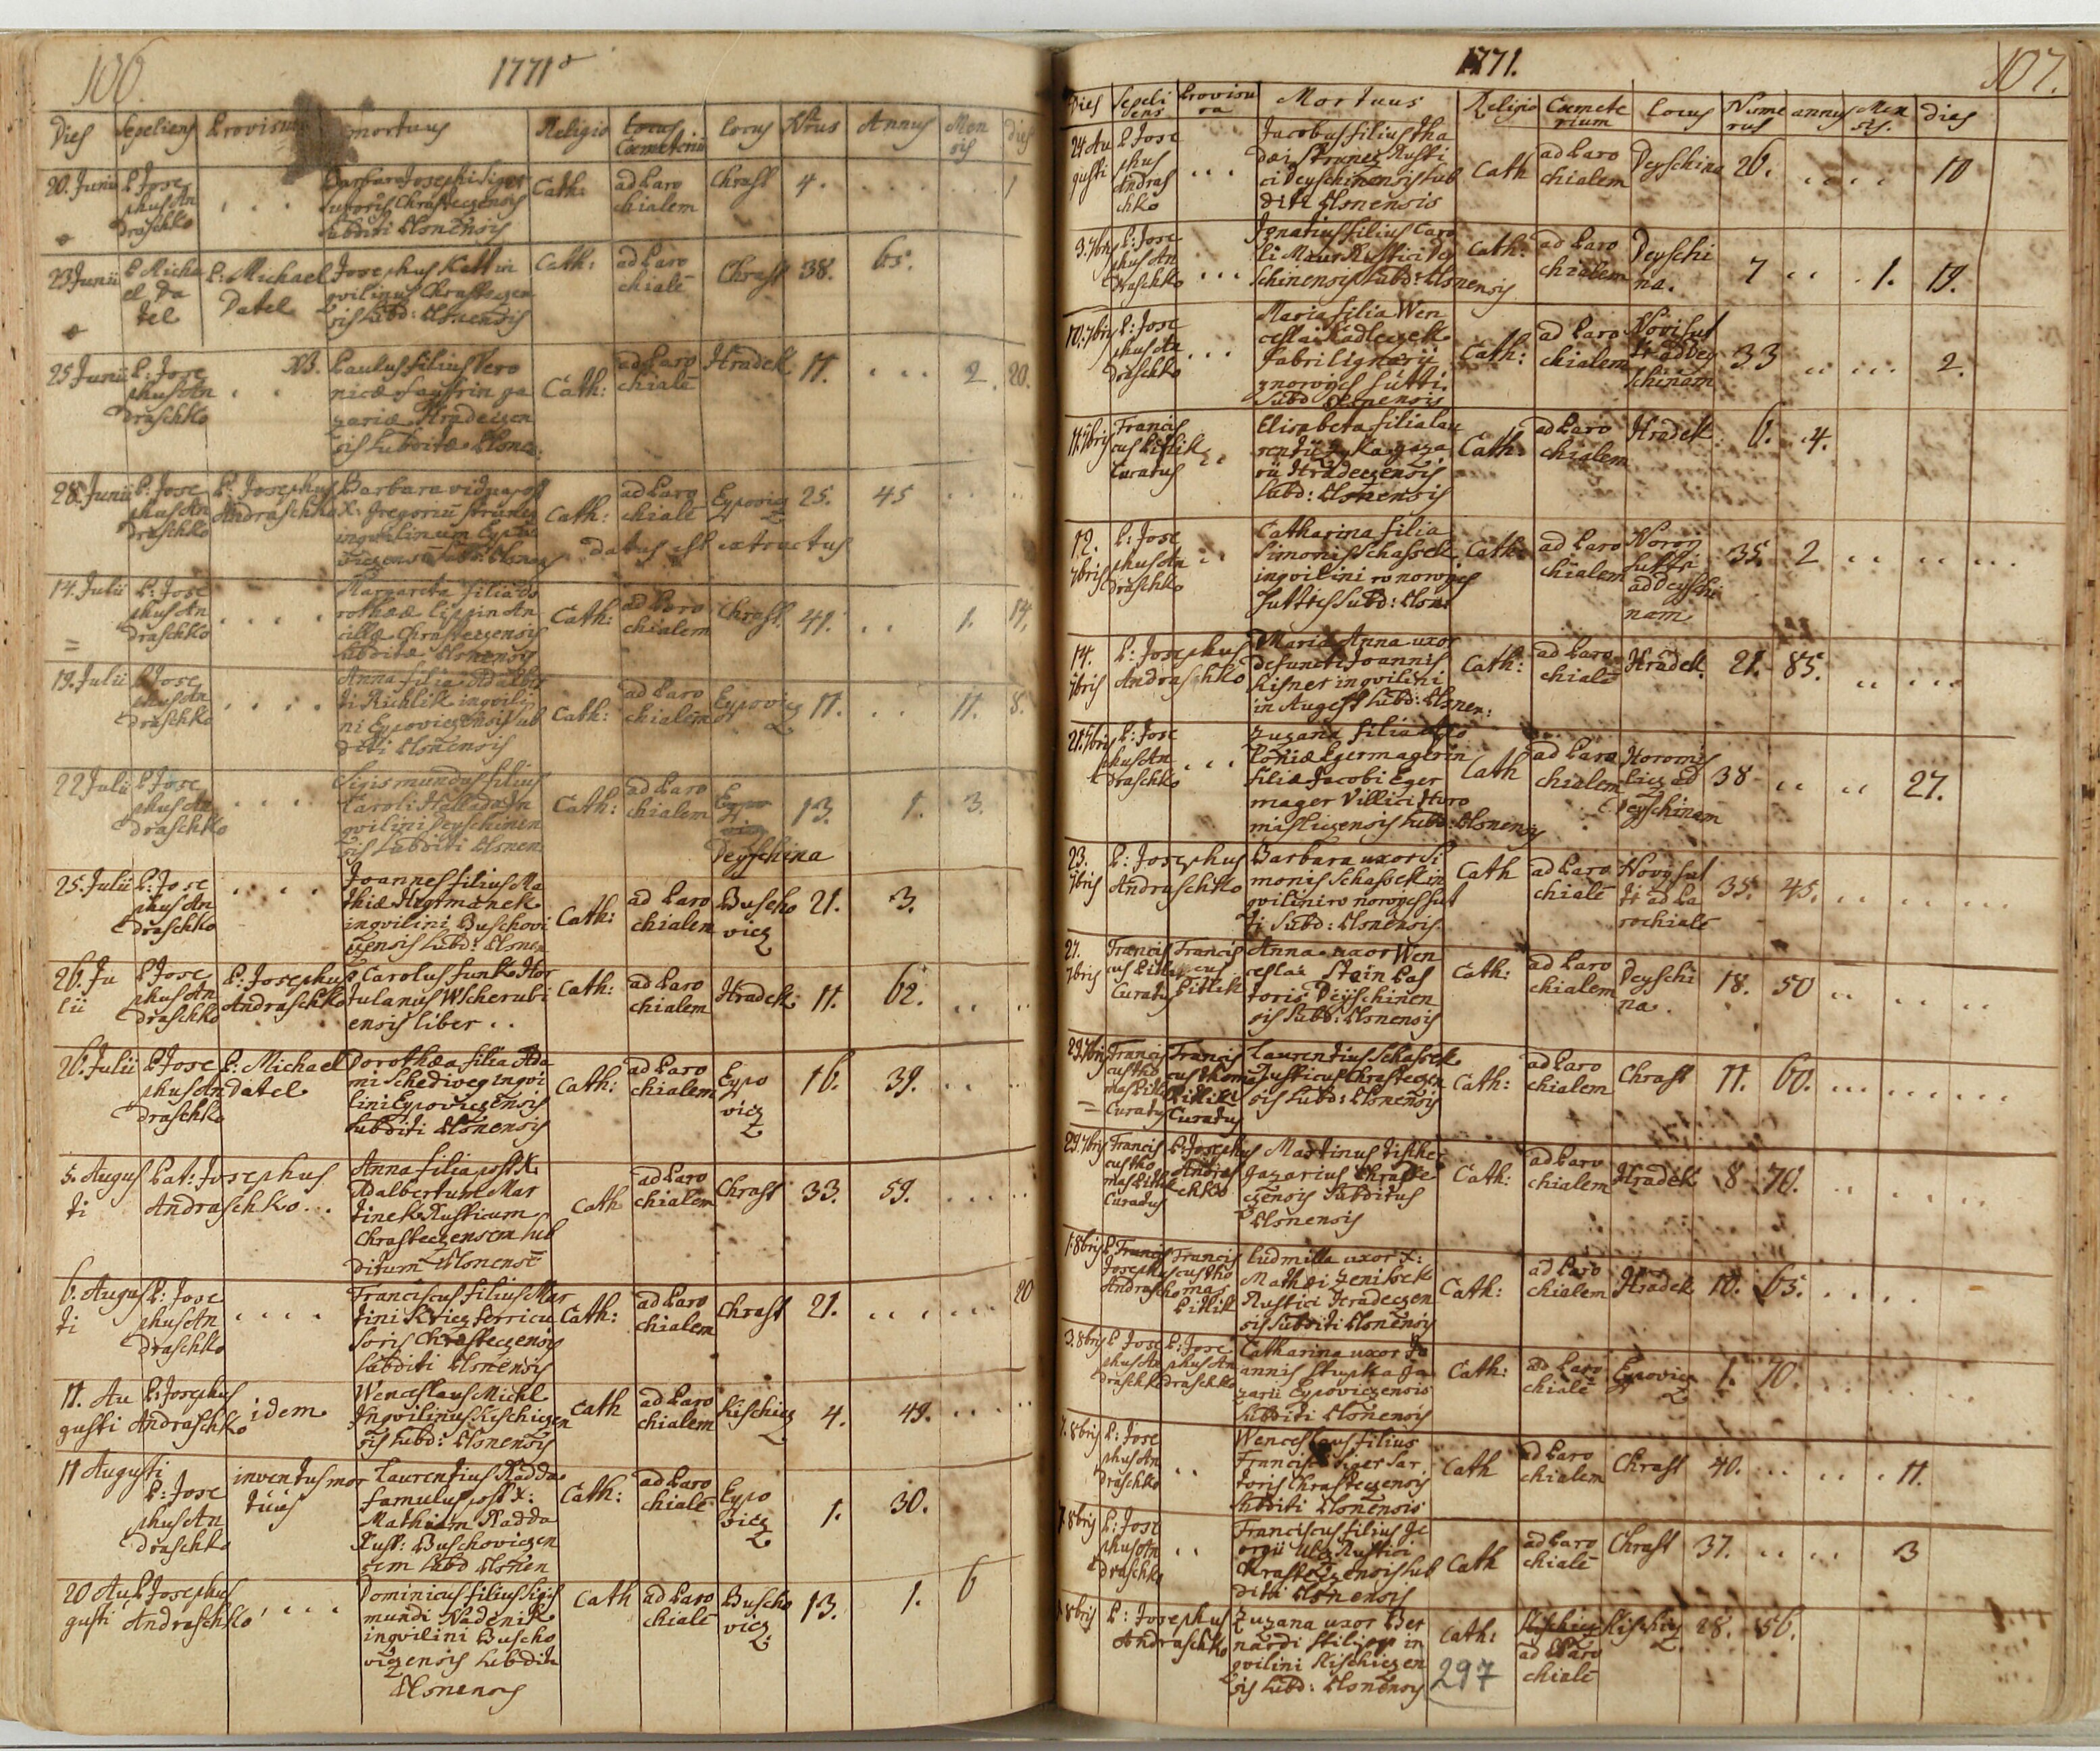 106.
1771
Dies Sepeliens Provisura mortuus Religio Locus Coemeterii Locus Nrus Annus Mensis dies
20. Junii P. Josephus Andraschko . . . Barbara Josephi Siger
sutoris Chrasteczensis
subditi Plsnensis Cath: ad Parochialem Chrast 4. . . . . 1
23 Junii P Michael Datel P: Michael Datel Josephus Kettl in
qvilinus Chrasteczen
sis subd: Plsnensis Cath: ad Parochiale Chrast 38. 65.
25 Junii P: Josephus Andraschko . . NB. Paulus filius Vero
nicæ
zariæ Hradeczen
sis subditæ Plsne: Cath: ad Parochiale Hradek 11. . . . 2. 20.
28. Junii P: Josephus Andraschko P: Josephus Andraschko Barbara vidua post
X: Gregoriu Strunez
inqvilinum Eypo
viczensem subd: Plsnens Cath: ad Parochiale Eypovicz 25. 45
Datus est extractus
14. Julii P: Josephus Andraschko . . . . Margareta filia Do
rotheæ in An
cillæ Chrasteczensis
subditæ Plsnensis Cath: ad Parochialem Chrast. 41. . . 1. 14.
19. Julii P Josephus Andraschko . . . . Anna filia Adalber
ti Richlik inqvili
ni Eypoviczensis sub
diti Plsnensis Cath: ad Parochialem Eypovicz 11. . . 11. 8.
22 Julii P Josephus Andraschko . . . . Sigismundus filius
Caroli Hallada In
qvilini Deyschinen
sis subditi Plsnen Cath: ad Parochialem Eypovicz Deyschina 13. 1. 3.
25. Julii P: Josephus Andraschko . . . . Joannes filius Ma
thiæ Hegrmanek
inqvilini Buschovi
czensis subd: Plsnen Cath: ad Parochialem Buschovicz 21. 3.
26. Julii P Josephus Andraschko P: Josephus Andraschko Carolus funk Hor
tulanus Wscherubi
ensis liber . . Cath: ad Parochialem Hradek 11. 62. . . . .
26. Julii P Josephus Andraschko P: Michael Datel Dorothæa filia Ada
mi Schediweg inqvi
lini Eypoviczensis
subditi Plsnensis Cath: ad Parochialem Eypovicz 16. 39. . . . .
5. Augusti Pat: Josephus Andraschko . . . Anna filia post X
Adalbertum Mar
tinek Rusticum
Chrasteczensem sub
ditum Plsnense Cath ad Parochialem Chrast 33. 59. . . . . .
6. Augusti P: Josephus Andraschko . . . . Franciscus filius Mar
tini Kriez ferricu
soris Chrasteczensis
subditi Plsnensis Cath: ad Parochialem Chrast 21. . . . . . . 20
11. Augusti P: Josephus Andraschko idem Wenceslaus Michl
Inqvilinus Kischiczen
sis subd: Plsnensis Cath ad Parochialem Kischicz 4. 49. . . . . .
11 Augusti P: Josephus Andraschko inventus mortuus Laurentius Radda
famulus post X:
Mathiam Radda
Rust: Buschoviczen
sem subd Plsnen Cath: ad Parochiale Eypovicz 1. 30.
20 Augusti P Josephus Andraschko . . . . Dominicus filius Sigis
mundi Nadenik
inqvilini Buscho
viczensis subditi
Plsnensis Cath ad Parochiale Buschovicz 13. 1. 6
1771.
107.
Dies Sepeliens Provisura Mortuus Religio Coemeterium Locus Numerus annus Mensis. dies
24 Augusti P Josephus Andraschko . . . Jacobus filius Tha
dæi Strunez Rusti
ci Deyschinensis sub
diti Plsnensis Cath ad Parochialem Deyschina 26. . . . . 10
9. 7bris P: Josephus Andraschko . . . Ignatius filius Caro
li Maur Rustici Dey
schinensis subd: Plsnensis Cath: ad Parochialem Deyschina. 7 . . . 1. 19.
10. 7bris P: Josephus Andraschko . . . Maria filia Wen
ceslai Kadleczek
fabri lignarii
znowych hutti.
subd Plsnensis Cath: ad Parochialem Novi hutti ad Deyschinam 33 . . . . . 2.
11. 7bris Franciscus Pitlik Curatus . . Elisabeta filia Lau
rentii
rii Hradeczensis
subd: Plsnensis Cath: ad Parochialem Hradek. 6. . 4.
12. 7bris P: Josephus Andraschko . . Catharina filia
Simonis Schassek
inqvilini v nowych
huttich subd: Plsn: Cath: ad Parochialem Novy hutti ad Deyschinam 35. 2 . . . . . . .
14. 7bris P: Josephus Andraschko Maria Anna uxor
defuncti Joannis
Kisner inqvilini
in Augest subd: Plsnen: Cath: ad Parochiale Hradek. 21. 85. . . . . .
21. 7bris P: Josephus Andraschko . . . Zuzana filia Apo
loniæ Egermagerin
filiæ Jacobi Eger
mager Villici Horo
misliczensis subd: Plsnensis Cath ad Parochialem Horomislicz ad Deyschinam 38 . . . . 27.
23. 7bris P: Josephus Andraschko Barbara uxor Si
monis Schassek in
qvilini v nowych hut
ti subd: Plsnensis Cath ad Parochiale Novy hutti ad Parochiale 35. 45. . . . . . . .
27. 7bris Franciscus Pitlik Curatus Franciscus Pitlik Anna uxor Wen
ceslai Stein Pas
toris Deyschinen
sis subd: Plsnensis Cath: ad Parochialem Deyschina. 18. 50 . . . . . . .
29. 7bris Franciscus Thomas Pitlik Curatus Franciscus Thomas Pitlik Curatus Laurentius Schassek
Rusticus Chrasteczen
sis subd: Plsnensis Cath: ad Parochialem Chrast 11. 60. . . . . . . . . .
29. 7bris Franciscus Thomas Pitlik Curatus P: Josephus Andraschko Martinus Fischer
Gazarius Chraste
czensis subditus
Plsnensis Cath: ad Parochialem Hradek 8 70. . . . . . .
1. 8bris P Josephus Andraschko Franciscus Thomas Pitlik Ludmilla uxor X:
Mathæi Zenissek
Rustici Hradeczen
sis subditi Plsnensis Cath: ad Parochialem Hradek 10. 65. . . . .
3. 8bris P Josephus Andraschko P: Josephus Andraschko Catharina uxor Jo
annis Skupka Ga
zarii Eypoviczensis
subditi Plsnensis Cath: ad Parochiale Eypovicz 1. 70.
7. 8bris P: Josephus Andraschko . . Wenceslaus filius
Francisci Siger Sar
toris Chrasteczensis
subditi Plsnensis Cath ad Parochialem Chrast 40. . . . . . . 11.
8bris P: Josephus Andraschko . . Franciscus filius Ge
orgii Ulcz Rustici
Chrasteczensis sub
diti Plsnensis Cath ad Parochiale Chrast 37. . . . . 3
8bris P: Josephus Andraschko Zuzana uxor Ber
nardi in
qvilini Kischiczen
sis subd: Plsnensis Cath: Kischicz ad Parochiale Kischicz 28. 56.
297